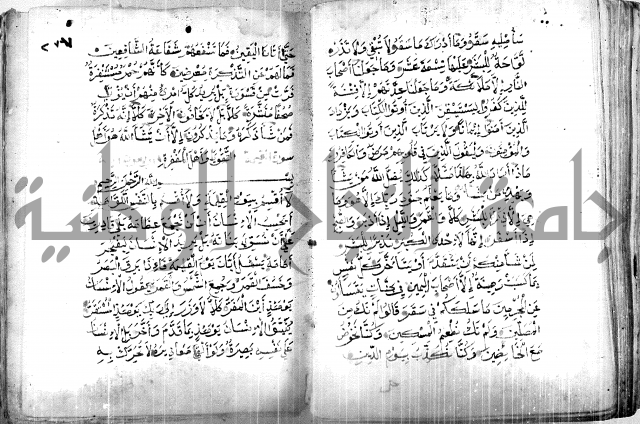 سأصليه سقر وما أدراك ما سقر لا تبقي ولا تذر
لواحة للبشر عليها تسعة عشر وما جعلنا أصحاب
النار إلا ملائكة وما جعلنا عدتهم إلا فتنة
للذين كفروا ليستيقن الذين أوتوا الكتاب ويزداد
الذين آمنوا إيمانا ولا يرتاب الذين أوتوا الكتاب
والمؤمنون وليقول الذين في قلوبهم مرض والكافرون
ماذا أراد الله بهذا مثلا كذلك يضل الله من يشاء
ويهدي من يشاء وما يعلم جنود ربك إلا هو وما
هي إلا ذكرى للبشر كلا والقمر والليل إذ أدبر والصبح
إذا أسفر إنها لإحدى الكبر نذيرا للبشر
لمن شاء منكم أن يتقدم أو يتأخر كل نفس
بما كسبت رهينة إلا أصحاب اليمين في جنات يتساءلون
عن المجرمين ما سلككم في سقر قالوا لم نك من
المصلين ولم نك نطعم المسكين وكنا نخوض
مع الخائضين وكنا نكذب بيوم الدين
حتى
حتى أتانا اليقين فما تنفعهم شفاعة الشافعين
فما لهم عن التذكرة معرضين كأنهم حمر مستنفرة
فرت من قسورة بل يريد كل امرئ منهم أن يؤتى
صحفا منشرة كلا بل لا يخافون الآخرة كلا إنه تذكرة
فمن شاء ذكره وما يذكرون إلا أن يشاء الله هو أهل
التقوى وأهل المغفرة سورة القيمة
بسم الله الرحمن الرحيم
لا أقسم بيوم القيمة ولا أقسم بالنفس اللوامة
أيحسب الإنسان ألن نجمع عظامه بلى قادرين
على أن نسوي بنانه بل يريد الإنسان ليفجر
أمامه يسئل أيان يوم القيمة فإذا برق البصر
وخسف القمر وجمع الشمس والقمر يقول الإنسان
يومئذ أين المفر كلا لا وزر إلى ربك يومئذ المستقر
ينبؤ الإنسان يومئذ بما قدم وأخر بل الإنسان
على نفسه بصيرة ولو ألقى معاذيره لا تحرك به
جامعة النجاح الوطنية